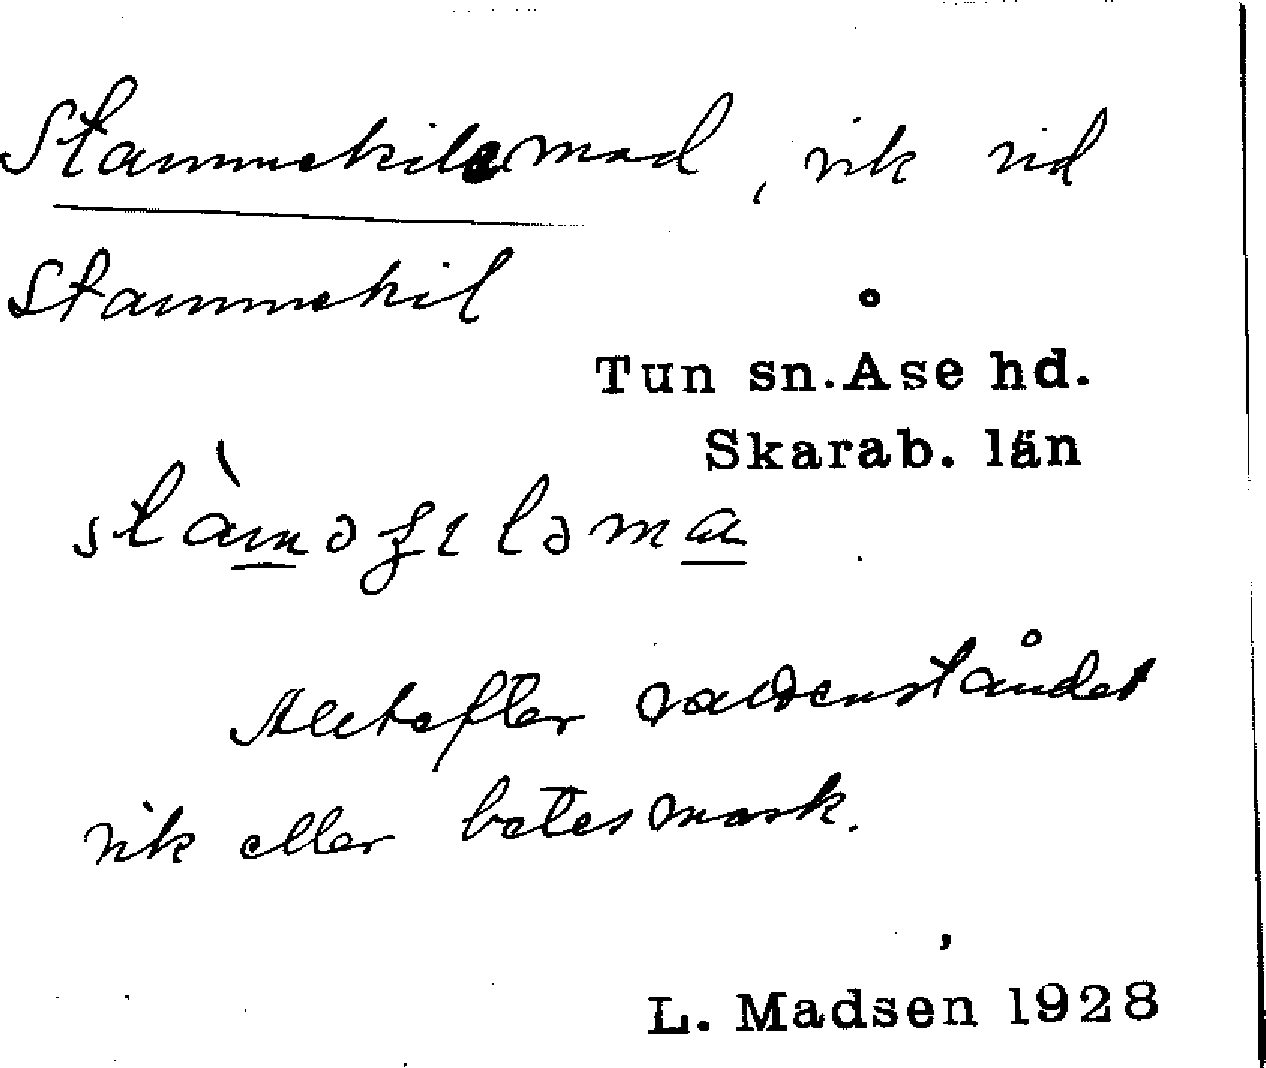 Stammekilemad, vik vid
Stammekil
Tun sn. Åse hd.
Skarab. län
Alltefter vattenståndet
vik eller betesmark.
L. Madsen 1928